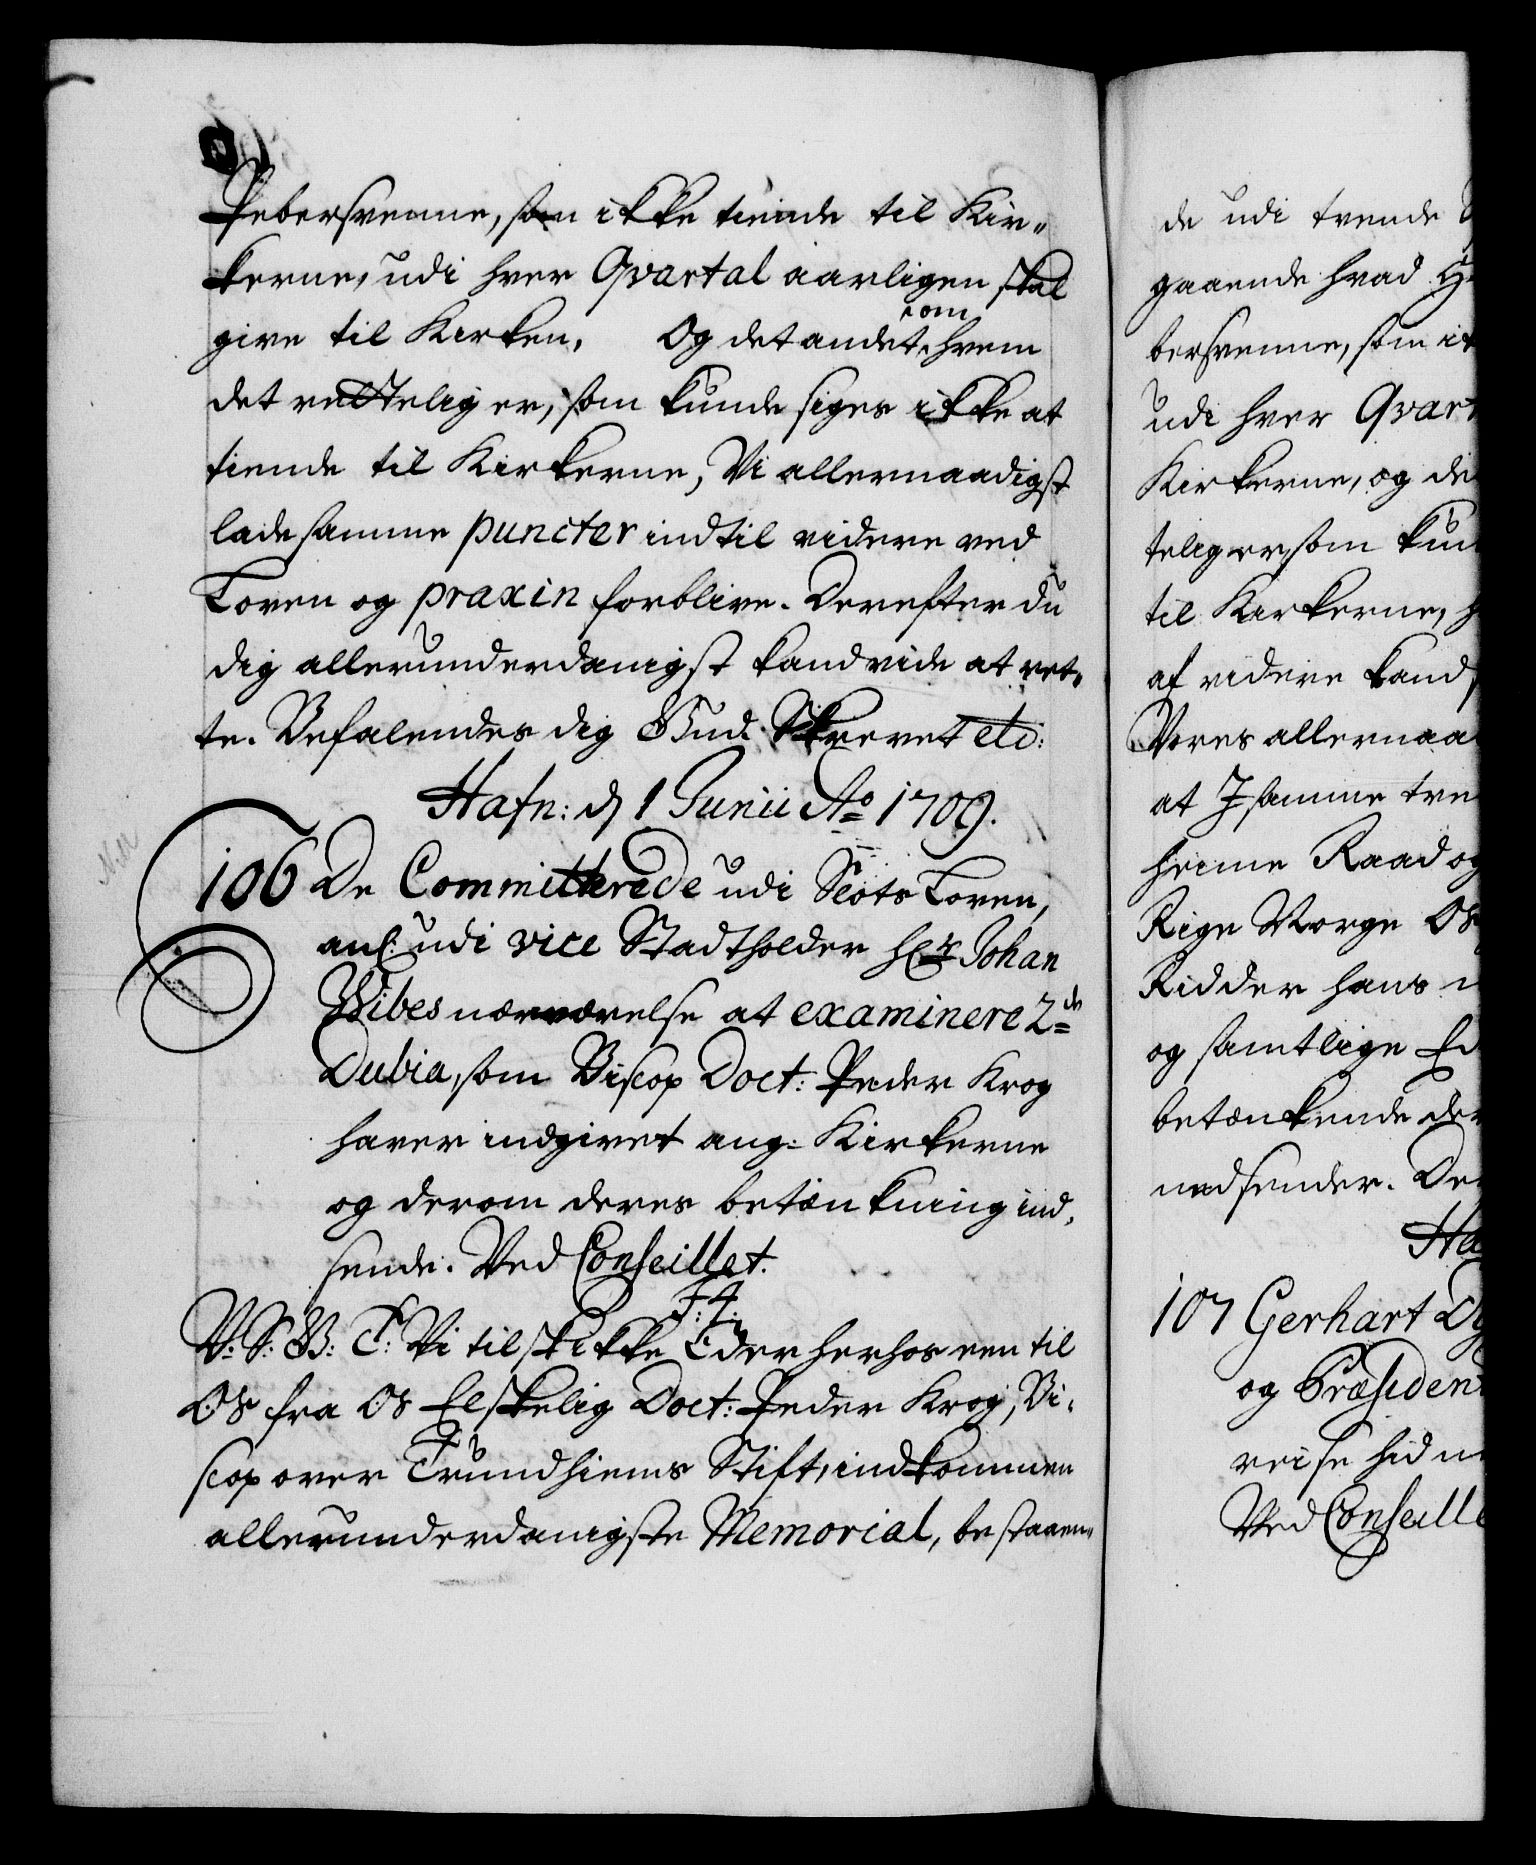 Pebersvenne, som ikke tiende til Kir-
kerne, udi hver Qvartal aarligen skal
give til Kirken, Og det andet, om hvem
det rettelig er, som kunde siges ikke at
tiende til Kirkerne, Vi allernaadigst
lade samme puncter indtil videre ved
Loven og praxin forblive. Derefter du
dig allerunderdanigst kand vide at ret-
te. Befalendes dig Gud. Skrevet etc:
Hafn: d 1 Junii Ao 1709.
106 De Committerede udi Slots Loven,
anl: udi vice Stadtholder Hr Johan
Wibes nærværelse at examinere 2de
Dubia, som Biscop Doct: Peder Krog
haver indgivet ang: Kirkerne
og derom deres betænkning ind-
sende. Ved Conseillet.
F:4.
V: S: G: T: Vi tilskikke Eder herhos een til
OS fra OS Elskelig Doct: Peder Krog, Bi-
scop over Trundhiems Stift, indkommen
allerunderdanigste Memorial, bestaaen-
de udi tvende
gaaende hvad
bersvenne, som ik
udi hver Qvart
Kirkerne, og de
telig er, som kun
til Kirkerne,
af videre kand
Vores allernaa
at I samme tve
heime Raad og
Rige Norge OS
Ridder hans
og samtlige Ed
betænkende der
nedsender. Der
Ha
107 Gerhart
og Præsident
reise hid
Ved Conseille